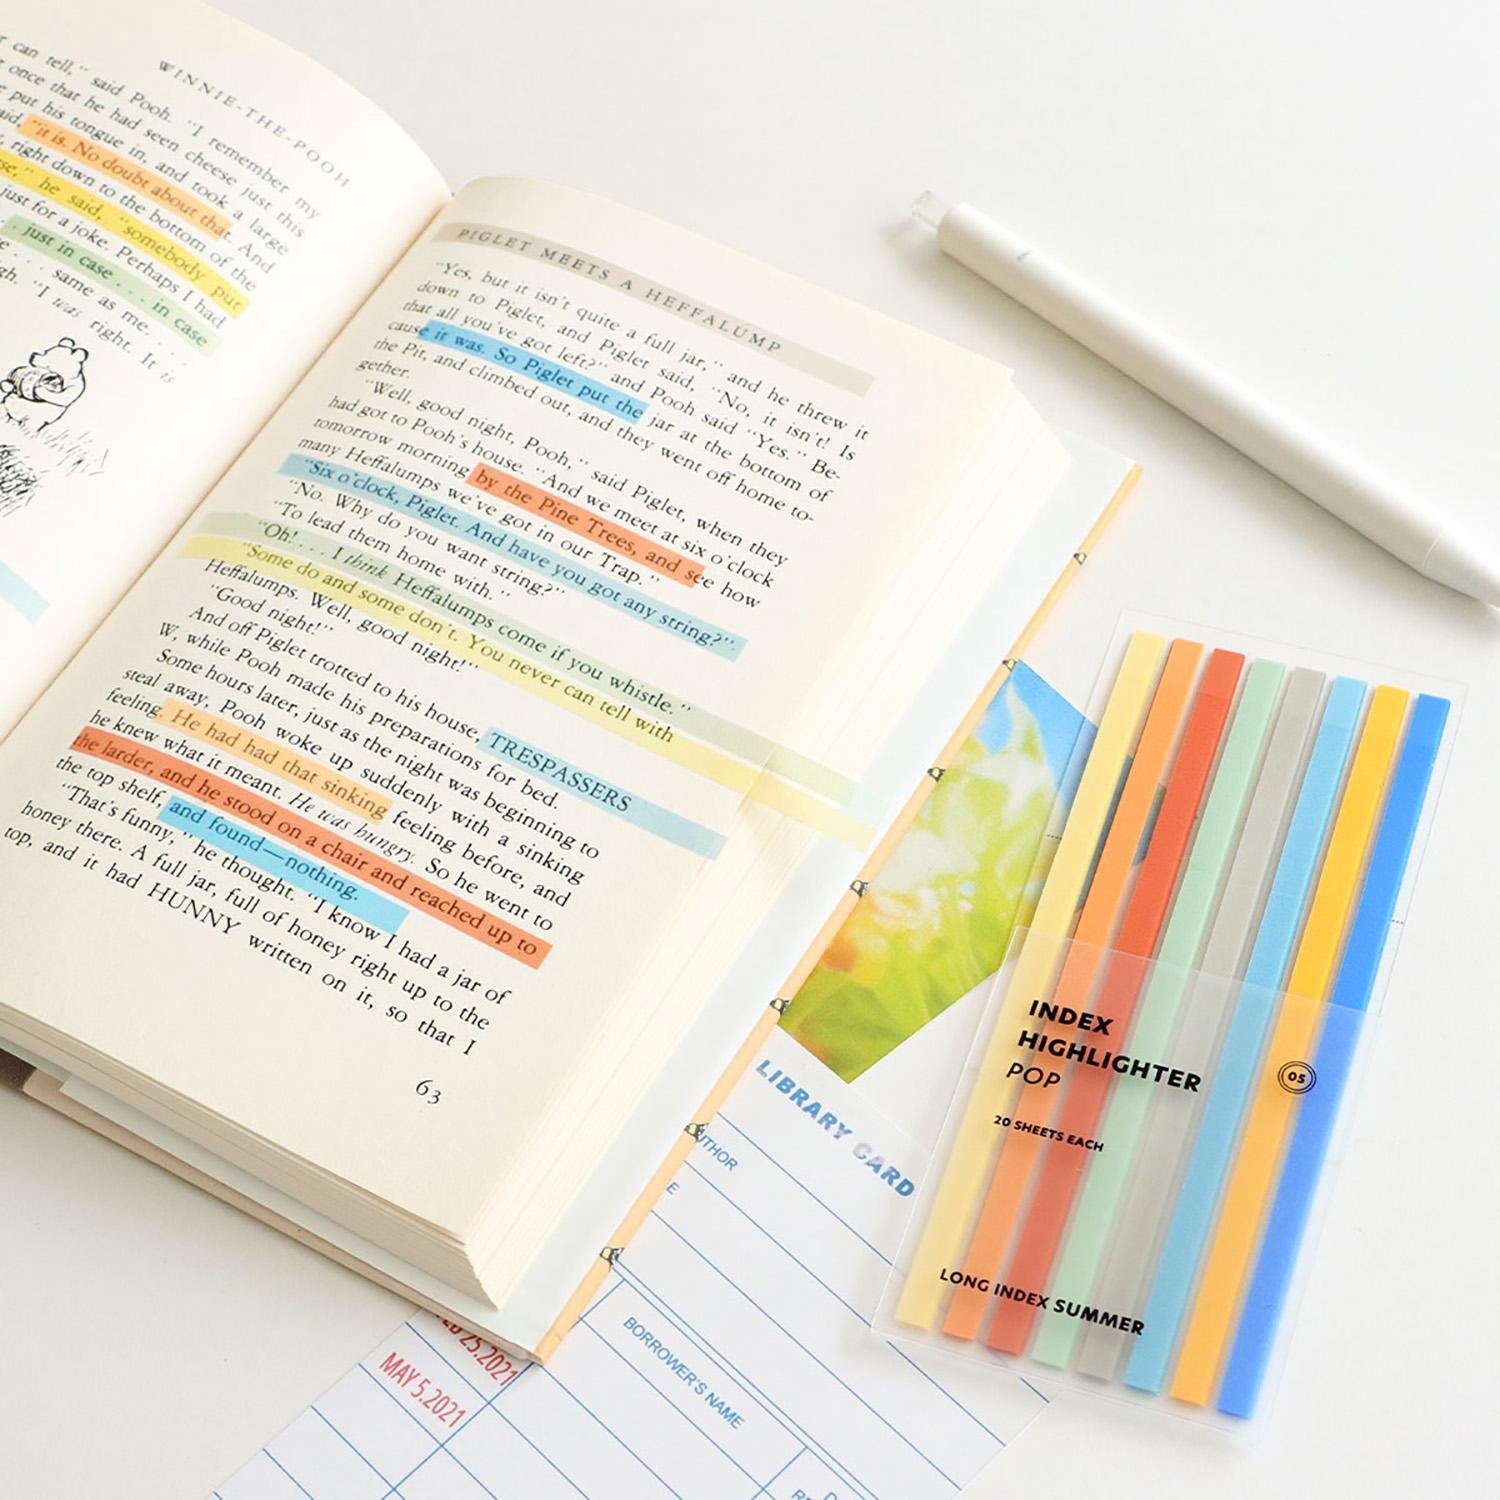 WINNIE-THE-POOH
can tell," said Pooh. "I remember my
once that he had seen cheese just this
put his tongue in, and took a large
"it is. No doubt about that. And
right down to the bottom of the
he said, "somebody put
just for a joke. Perhaps I had
. just in case . . . in case
. . . . same as me. . . .
"I was right. It is
PIGLET MEETS A HEFFALUMP
"Yes, but it isn't quite a full jar," and he threw it
down to Piglet, and Piglet said, "No, it isn't! Is
that all you've got left?" and Pooh said "Yes." Be-
cause it was. So Piglet put the jar at the bottom of
the Pit, and climbed out, and they went off home to-
gether.
"Well, good night, Pooh," said Piglet, when they
had got to Pooh's house. "And we meet at six o'clock
tomorrow morning by the Pine Trees, and see how
many Heffalumps we've got in our Trap."
"Six o'clock, Piglet. And have you got any string?"
"No. Why do you want string?"
"To lead them home with."
"Oh! . . . I think Heffalumps come if you whistle."
"Some do and some don't. You never can tell with
Heffalumps. Well, good night!"
"Good night!"
And off Piglet trotted to his house, TRESPASSERS
W, while Pooh made his preparations for bed.
Some hours later, just as the night was beginning to
steal away, Pooh woke up suddenly with a sinking
feeling. He had had that sinking feeling before, and
he knew what it meant. He was hungry. So he went to
the larder, and he stood on a chair and reached up to
the top shelf, and found—nothing.
"That's funny," he thought. "I know I had a jar of
honey there. A full jar, full of honey right up to the
top, and it had HUNNY written on it, so that I
63
LIBRARY CARD
BORROWER'S NAME
25.2021
MAY 5.2021
INDEX
HIGHLIGHTER
POP
05
20 SHEETS EACH
LONG INDEX SUMMER